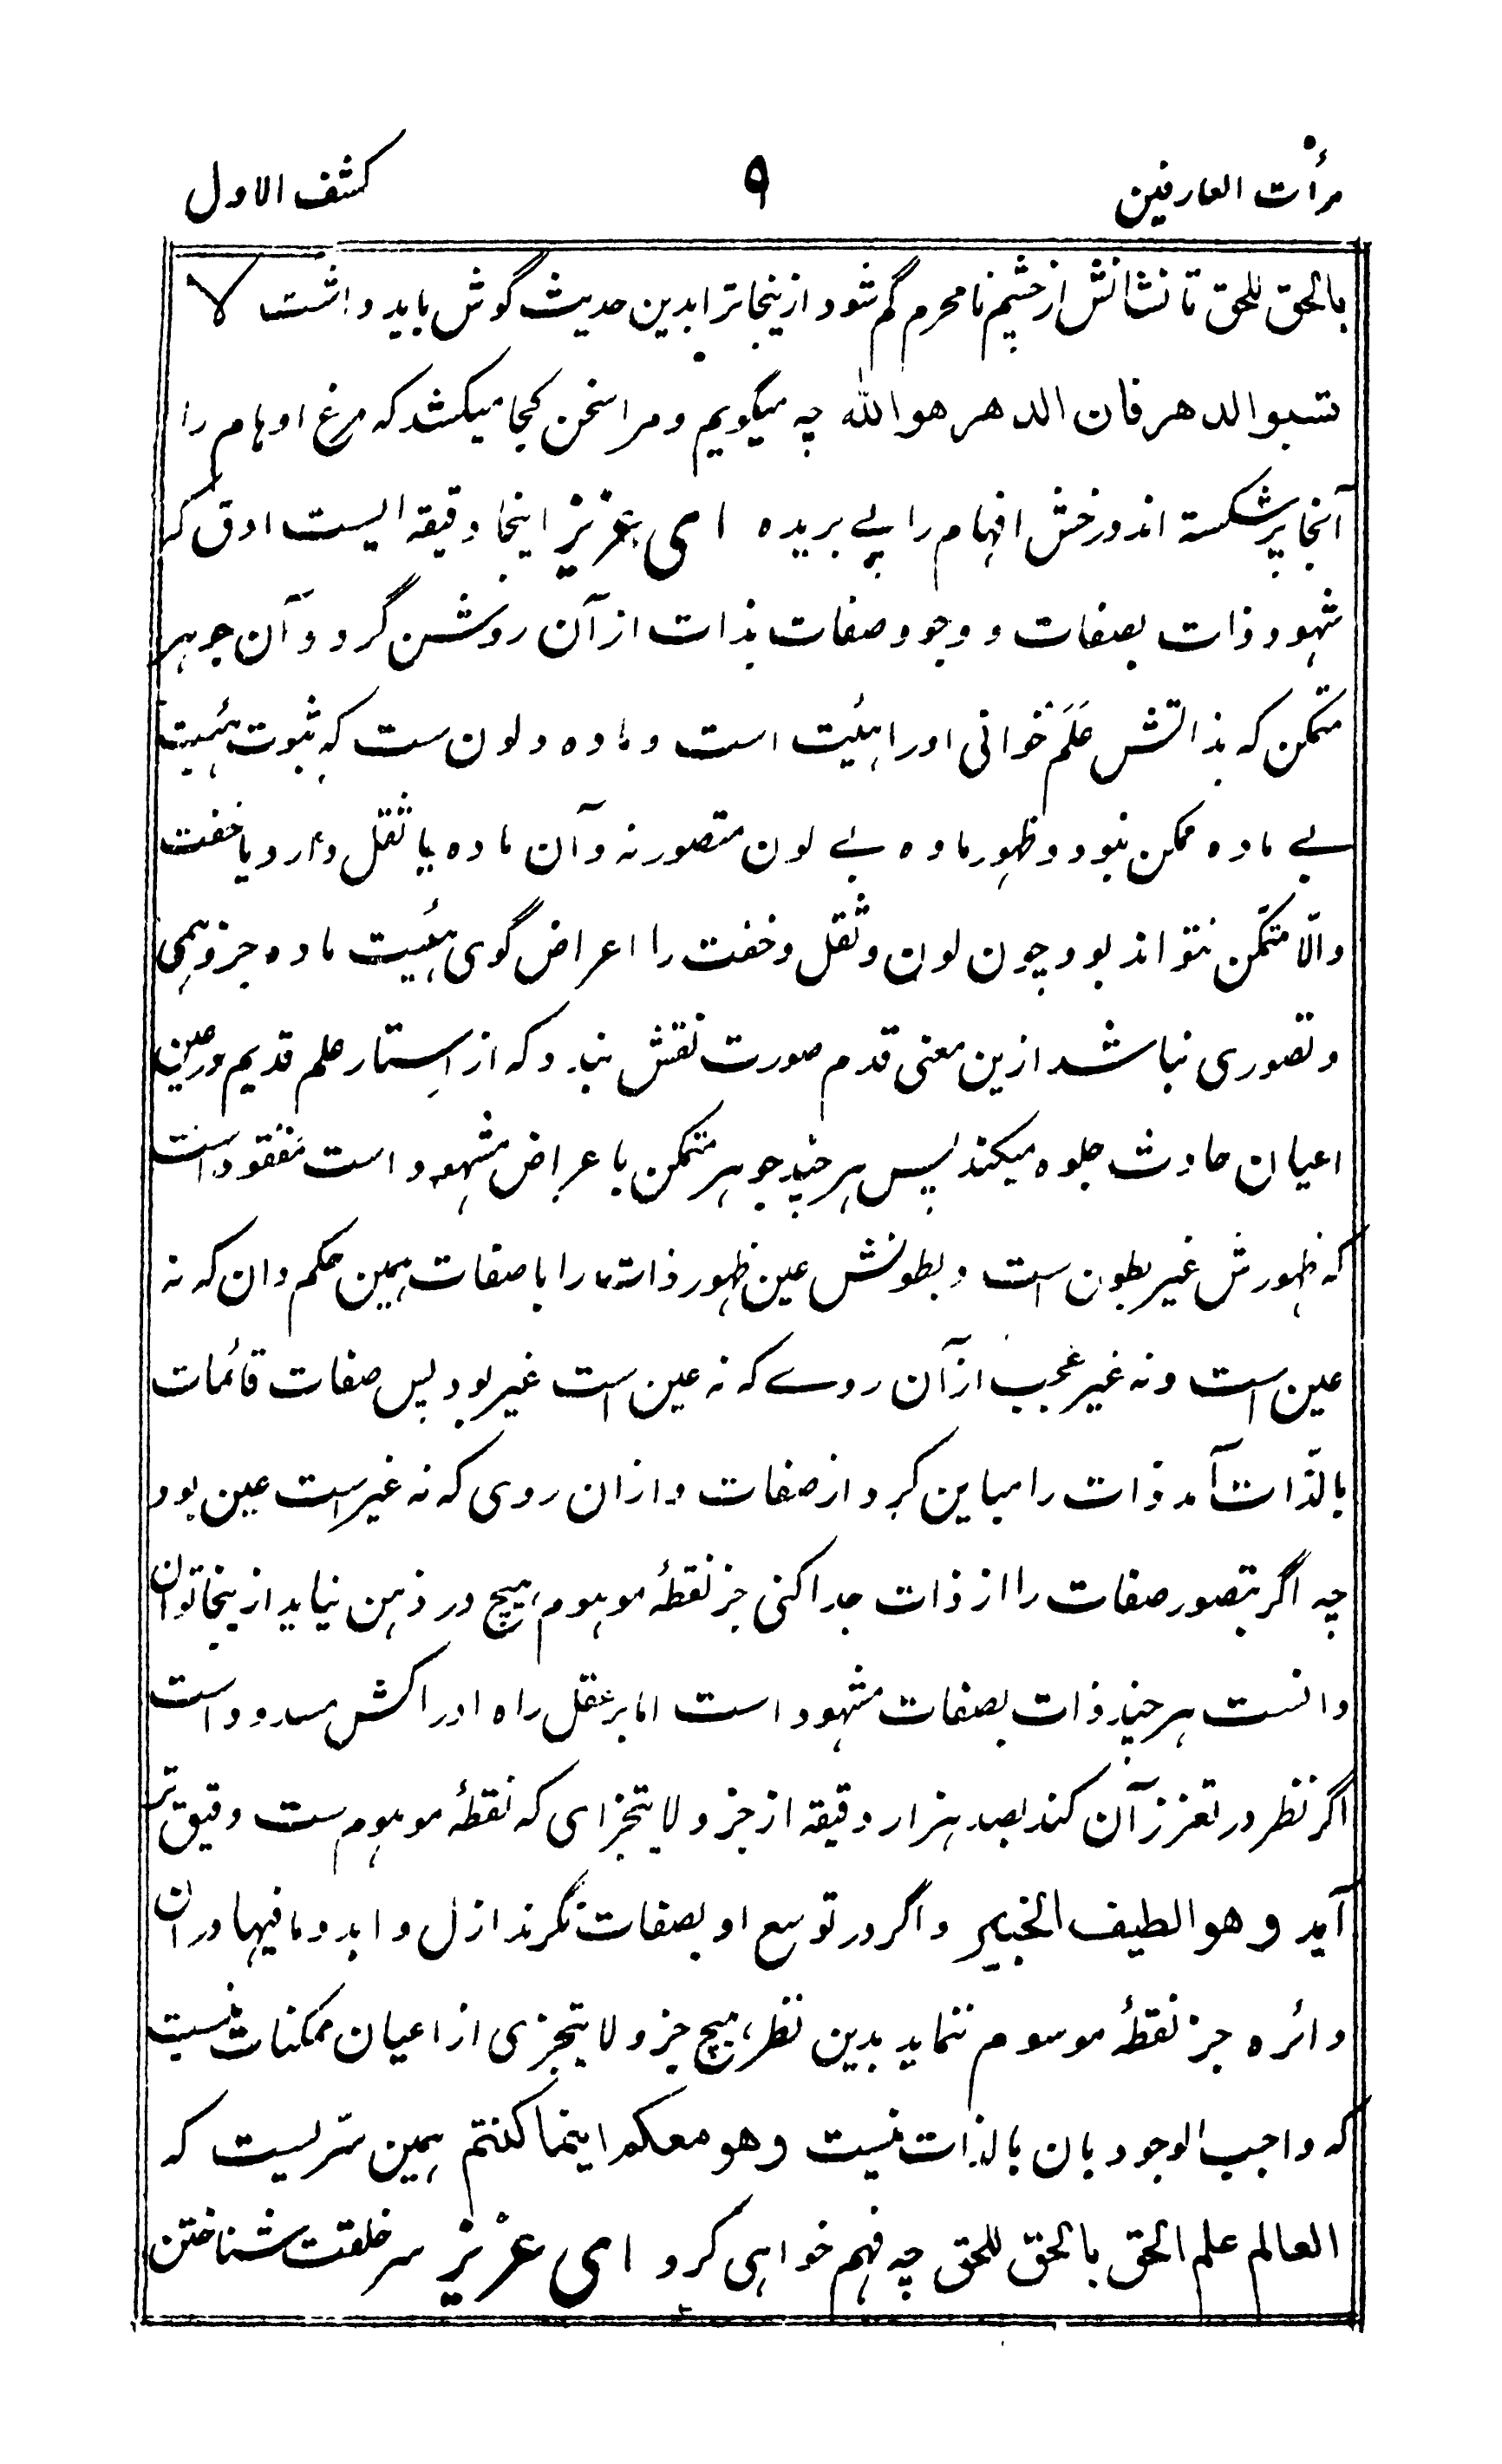 مرأت العارفین ۹ کشف الاول
بالحق للحق تا نشانش از چشم نامحرم گم شود ازینجا ترا بدین حدیث گوش باید داشت لا
تسبوا الدهر فان الدهر هو الله چه میگویم و مرا سخن کجا میکشد که مرغ اوهام را
آنجا پر شکسته اند و رخش افهام را پے بریده ای عزیز اینجا دقیقه ایست ادق که
شهود ذات بصفات و وجود صفات بذات از آن روشن گردد و آن جوهر
متمکن که بذاتش علَم خوانی او را هئیت است و ماده و لون ست که ثبوت هئیت
بے ماده ممکن نبود و ظهور ماده بے لون متصور نه و آن ماده یا ثقل دارد یا خفت
والّا متمکن نتواند بود چون لون و ثقل و خفت را اعراض گوی هئیت ماده جز وهمی
و تصوری نباشد ازین معنی قدم صورت نقش بندد که از استار علم قدیم در عین
اعیان حادث جلوه میکند پس هر چند جوهر متمکن با عراض مشهود است مفقود است
که ظهورش غیر بطون است و بطونش عین ظهور ذات ما را با صفات همین حکم دان که نه
عین است و نه غیر عجب از آن روے که نه عین است غیر بود پس صفات قائمات
بالذّات آمد ذات را مباین کرد از صفات و ازان روی که نه غیر است عین بود
چه اگر بتصور صفات را از ذات جدا کنی جز نقطهٔ موهوم هیچ در ذهن نیاید ازینجا توان
دانست هر چند ذات بصفات مشهود است اما بر عقل راه ادراکش مسدود است
اگر نظر در تعزز آن کند بصد هزار دقیقه از جزو لا یتجزای که نقطهٔ موهوم ست دقیق تر
آید و هو الطیف الخبیر و اگر در توسع او بصفات نگرند ازل و ابد و مافیها دران
دائره جز نقطهٔ موسوم ننماید بدین نظر هیچ جزو لا یتجزی از اعیان ممکنات نیست
که واجب الوجود بان بالذات نیست و هو معکم اینما کنتم همین سّریست که
العالم علم الحق بالحق للحق چه فهم خواهی کرد ای عزیز سر خلقت شناختن